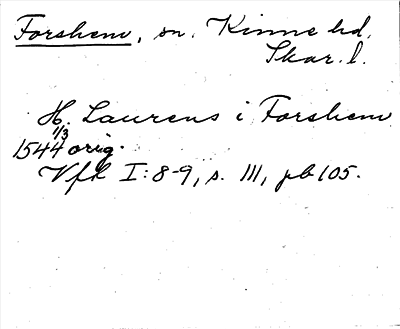 Forshem, sn. Kinne hd.
Skar. l.
H. Laurens i Forshem
1/3
1544 orig.
Vfk I:8-9, s. 111, pb 105.